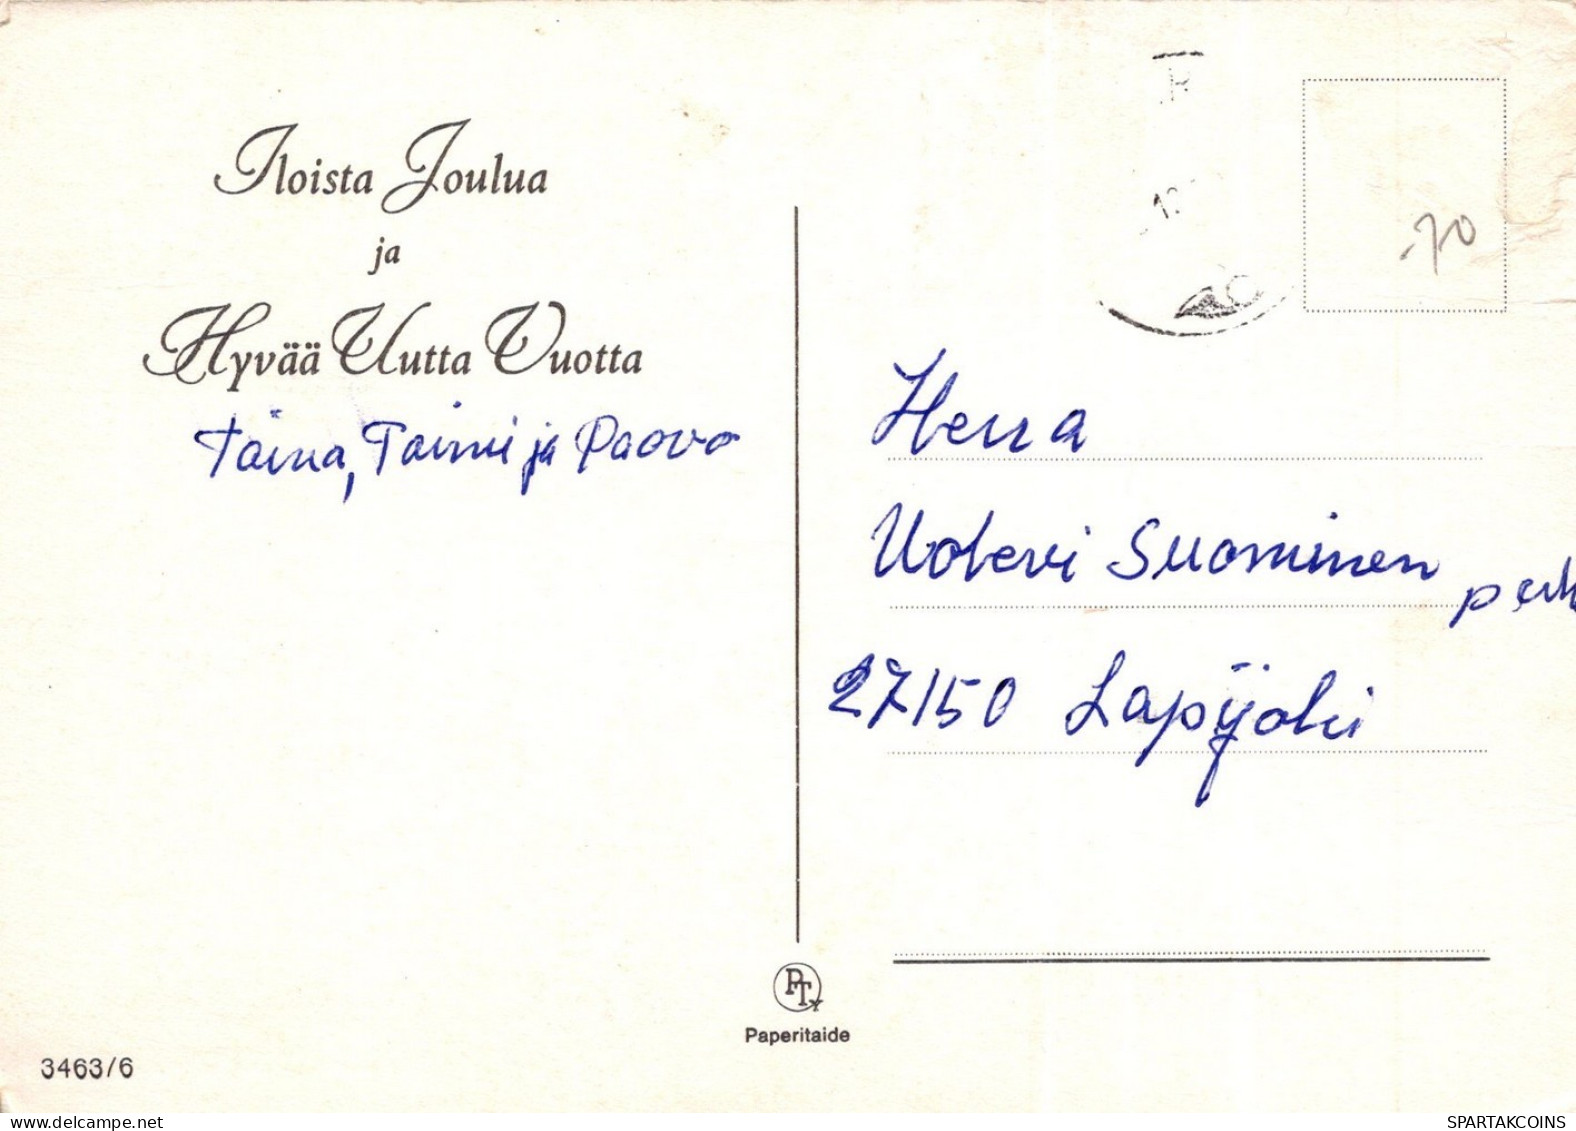 Iloista Joulua
ja
Hyvää Uutta Vuotta
Taina, Taimi ja Paavo
-70
Herra
Uolevi Suominen perh
27150 Lapijoki
PTY
Paperitaide
3463/6
www.delcampe.net
SPARTAKCOINS